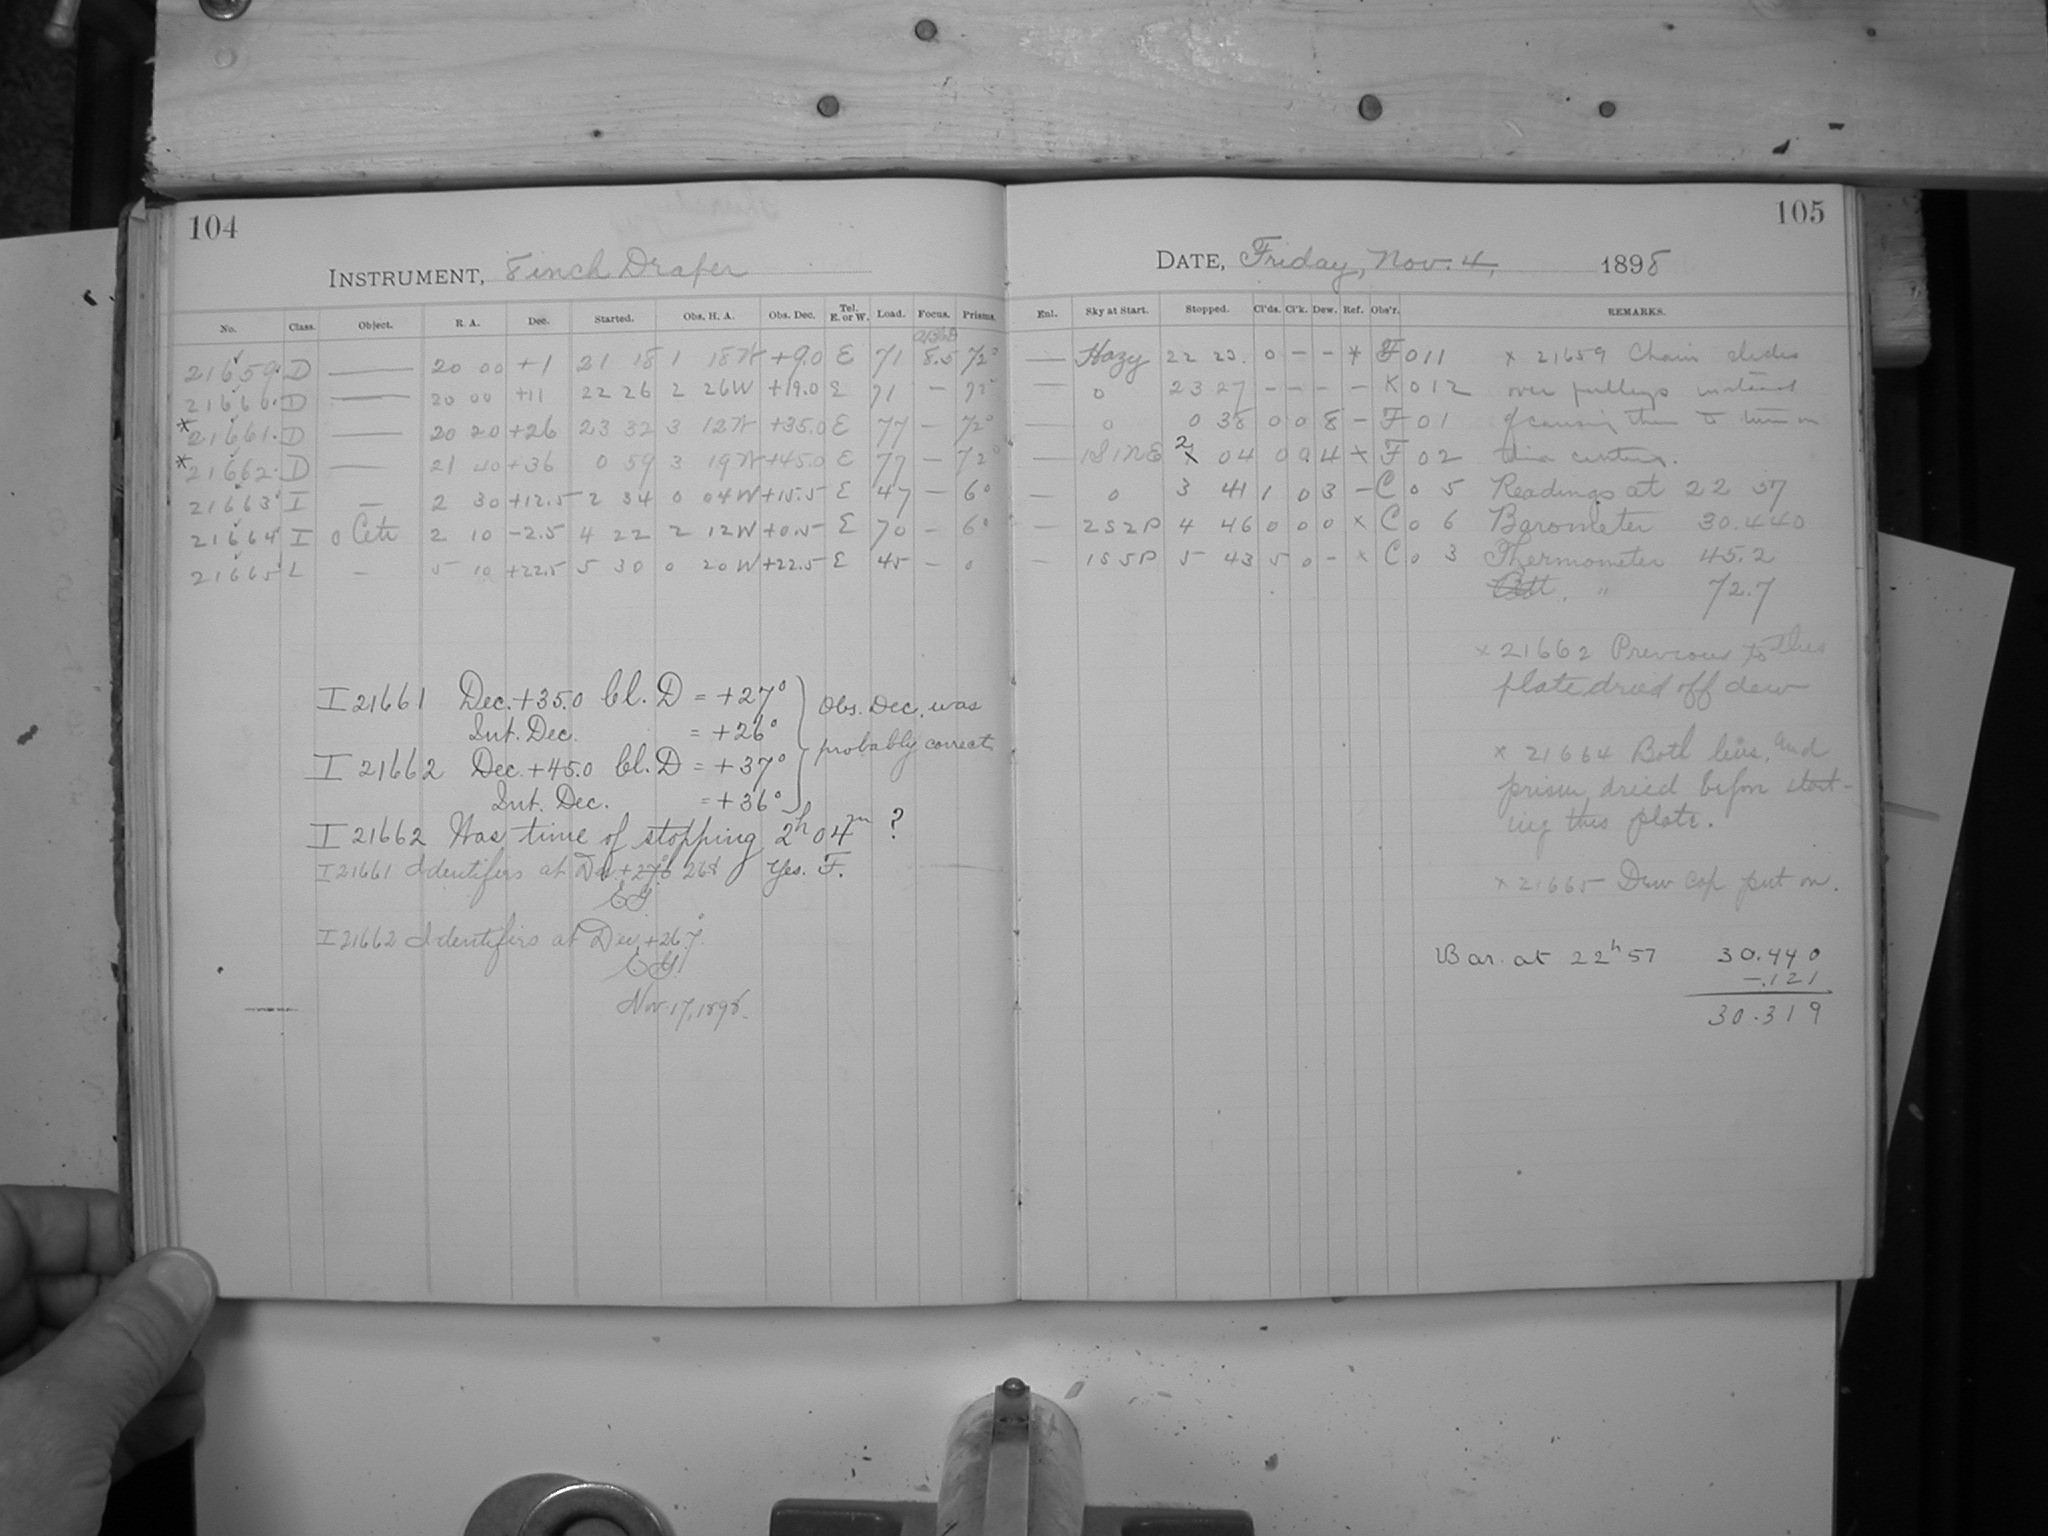 104
INSTRUMENT, 8 inch Draper
No. Class. Object. R. A. Dec. Started. Obs. H. A. Obs. Dec. Tel. E. or W. Load. Focus. Prisms.
21659 D — 20 00 +1 21 18 1 18W +9.0 E 71 8.5 72°
21660 D — 20 00 +11 22 26 2 26W +19.0 E 71 – 72°
*21661 D — 20 20 +26 23 32 3 12W +35.0 E 77 – 72°
*21662 D — 21 40 +36 0 59 3 19W +45.0 E 77 – 72°
21663 I — 2 30 +12.5 2 34 0 04W +15.5 E 47 – 6°
21664 I o Ceti 2 10 -2.5 4 22 2 12W +0.5 E 70 – 6°
21665 L – 5 10 +22.5 5 30 0 20W +22.5 E 45 – 0
I 21661 Dec. +35.0 Cl. D = +27°
Int. Dec. = +26°
I 21662 Dec. +45.0 Cl. D = +37°
Int. Dec. = +36°
Obs. Dec. was
probably correct
I 21662 Was time of stopping 2h 04m ?
I 21661 Identifies at Dec. Yes. F.
I 21662 Identifies at Dec. +26.7°
Nov. 17, 1898.
105
DATE, Friday, Nov. 4, 1898
Enl. Sky at Start. Stopped. Cl'ds. Cl'k. Dew. Ref. Obs'r. REMARKS.
— Hazy 22 23. 0 – – * F 011 × 21659 Chain slides
— 0 23 27 – – – – K 012 over pulleys instead
— 0 0 38 0 0 8 – F 01 of causing them to turn on
— 1S1NE 2 04 0 0 4 × F 02 their centers.
— 0 3 41 1 0 3 – C 0 5 Readings at 22 57
— 2S2P 4 46 0 0 0 × C 0 6 Barometer 30.440
— 1S5P 5 43 5 0 – × C 0 3 Thermometer 45.2
Att. " 72.7
× 21662 Previous to this
plate dried off dew
× 21664 Both lens, and
prism dried before start-
ing this plate.
× 21665 Dew cap put on.
Bar. at 22h 57 30.440
-.121
30.319